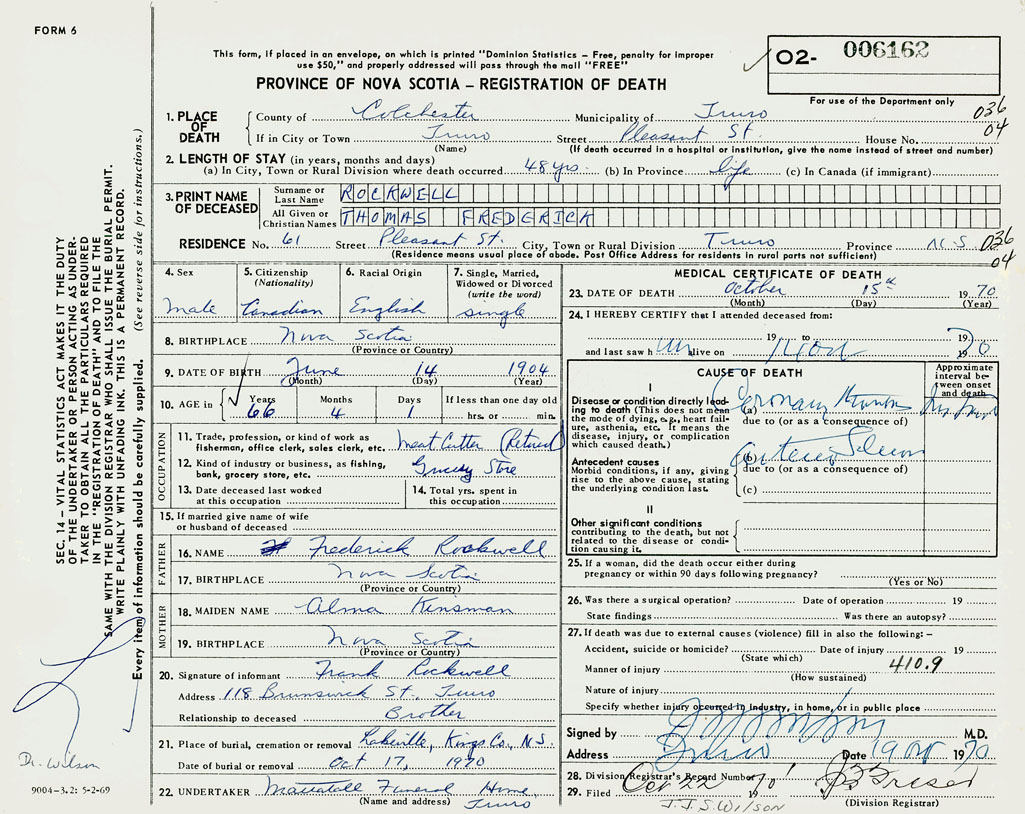 FORM 6
This form, if placed in an envelope, on which is printed "Dominion Statistics – Free, penalty for improper
use $50," and properly addressed will pass through the mail "FREE"
02- 006162
PROVINCE OF NOVA SCOTIA – REGISTRATION OF DEATH
For use of the Department only
036
04
1. PLACE OF DEATH
County of Colchester Municipality of Truro
If in City or Town Truro Street Pleasant St. House No.
(Name) (If death occurred in a hospital or institution, give the name instead of street and number)
2. LENGTH OF STAY (in years, months and days)
(a) In City, Town or Rural Division where death occurred 48 yrs. (b) In Province life (c) In Canada (if immigrant)
3. PRINT NAME OF DECEASED
Surname or Last Name ROCKWELL
All Given or Christian Names THOMAS FREDERICK
RESIDENCE No. 61 Street Pleasant St. City, Town or Rural Division Truro Province N.S. 036
04
(Residence means usual place of abode. Post Office Address for residents in rural parts not sufficient)
4. Sex
Male
5. Citizenship
(Nationality)
Canadian
6. Racial Origin
English
7. Single, Married,
Widowed or Divorced
(write the word)
single
8. BIRTHPLACE Nova Scotia
(Province or Country)
9. DATE OF BIRTH June 14 1904
(Month) (Day) (Year)
10. AGE in
Years Months Days If less than one day old
66 4 1 hrs. or min.
OCCUPATION
11. Trade, profession, or kind of work as
fisherman, office clerk, sales clerk, etc. Meat Cutter (Retired)
12. Kind of industry or business, as fishing,
bank, grocery store, etc. Grocery Store
13. Date deceased last worked
at this occupation
14. Total yrs. spent in
this occupation
15. If married give name of wife
or husband of deceased
FATHER
16. NAME Frederick Rockwell
17. BIRTHPLACE Nova Scotia
(Province or Country)
MOTHER
18. MAIDEN NAME Alma Kinsman
19. BIRTHPLACE Nova Scotia
(Province or Country)
20. Signature of informant Frank Rockwell
Address 118 Brunswick St. Truro
Relationship to deceased Brother
21. Place of burial, cremation or removal Lakeville, Kings Co., N.S.
Date of burial or removal Oct 17, 1970
22. UNDERTAKER Mattatall Funeral Home,
(Name and address) Truro
MEDICAL CERTIFICATE OF DEATH
23. DATE OF DEATH October 15th 1970
(Month) (Day) (Year)
24. I HEREBY CERTIFY that I attended deceased from:
19 to 19
and last saw him alive on 19 70
CAUSE OF DEATH
Approximate
interval be-
tween onset
and death
I
Disease or condition directly lead-
ing to death (This does not mean
the mode of dying, e.g., heart fail-
ure, asthenia, etc. It means the
disease, injury, or complication
which caused death.)
(a) Coronary
due to (or as a consequence of)
Antecedent causes
Morbid conditions, if any, giving
rise to the above cause, stating
the underlying condition last.
(b)
due to (or as a consequence of)
(c)
II
Other significant conditions
contributing to the death, but not
related to the disease or condi-
tion causing it.
25. If a woman, did the death occur either during
pregnancy or within 90 days following pregnancy?
(Yes or No)
26. Was there a surgical operation? Date of operation 19
State findings Was there an autopsy?
27. If death was due to external causes (violence) fill in also the following: –
Accident, suicide or homicide? Date of injury 19
(State which)
410.9
Manner of injury
(How sustained)
Nature of injury
Specify whether injury occurred in industry, in home, or in public place
Signed by M.D.
Address Truro Date 19 Oct 1970
28. Division Registrar's Record Number
29. Filed Oct 22 1970
(Division Registrar)
J.J.S. WILSON
SEC. 14 – VITAL STATISTICS ACT MAKES IT THE DUTY
OF THE UNDERTAKER OR PERSON ACTING AS UNDER-
TAKER TO OBTAIN ALL THE PARTICULARS REQUIRED
IN THE "REGISTRATION OF DEATH" AND TO FILE THE
SAME WITH THE DIVISION REGISTRAR WHO SHALL ISSUE THE BURIAL PERMIT.
WRITE PLAINLY WITH UNFADING INK. THIS IS A PERMANENT RECORD.
Every item of information should be carefully supplied. (See reverse side for instructions.)
Dr. Wilson
9004-3.2: 5-2-69